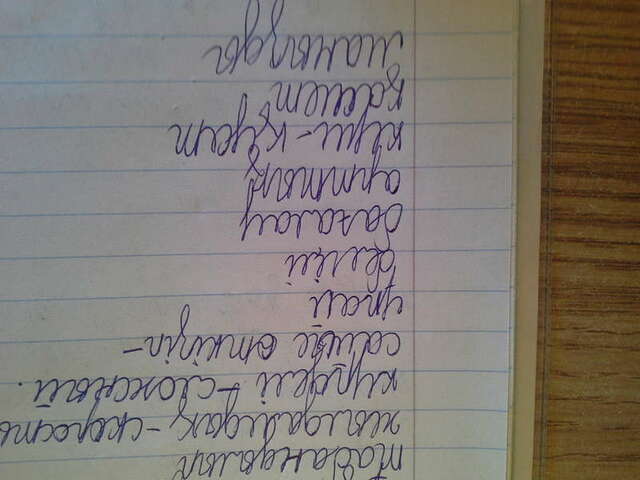 табандылық
жылдамдық - скорость
күрделі - сложный.
сайыс өткізіп -
ұпай
белгілі
бағалау
арттық
күш - қуат
қасиет
маңызды